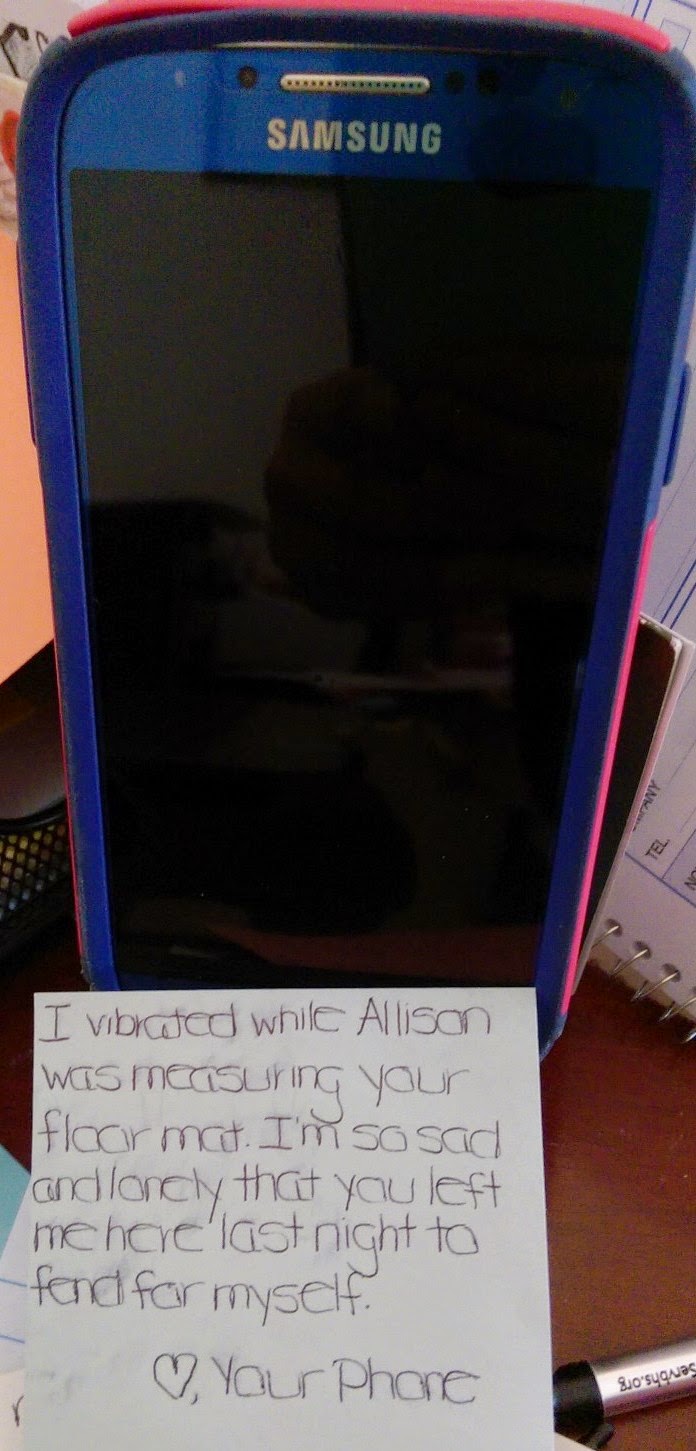 SAMSUNG
TEL.
I vibrated while Allison
was measuring your
floor mat. I'm so sad
and lonely that you left
me here last night to
fend for myself.
♡, Your Phone
Servbhs.org